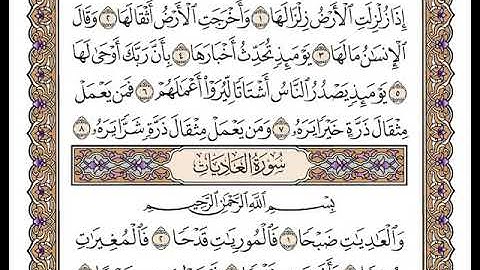 إِذَا زُلْزِلَتِ ٱلْأَرْضُ زِلْزَالَهَا ١ وَأَخْرَجَتِ ٱلْأَرْضُ أَثْقَالَهَا ٢ وَقَالَ
ٱلْإِنسَٰنُ مَا لَهَا ٣ يَوْمَئِذٍ تُحَدِّثُ أَخْبَارَهَا ٤ بِأَنَّ رَبَّكَ أَوْحَىٰ لَهَا
٥ يَوْمَئِذٍ يَصْدُرُ ٱلنَّاسُ أَشْتَاتًا لِّيُرَوْا۟ أَعْمَٰلَهُمْ ٦ فَمَن يَعْمَلْ
مِثْقَالَ ذَرَّةٍ خَيْرًا يَرَهُۥ ٧ وَمَن يَعْمَلْ مِثْقَالَ ذَرَّةٍ شَرًّا يَرَهُۥ ٨
سُورَةُ العَادِيَاتِ
بِسْمِ ٱللَّهِ ٱلرَّحْمَٰنِ ٱلرَّحِيمِ
وَٱلْعَٰدِيَٰتِ ضَبْحًا ١ فَٱلْمُورِيَٰتِ قَدْحًا ٢ فَٱلْمُغِيرَٰتِ